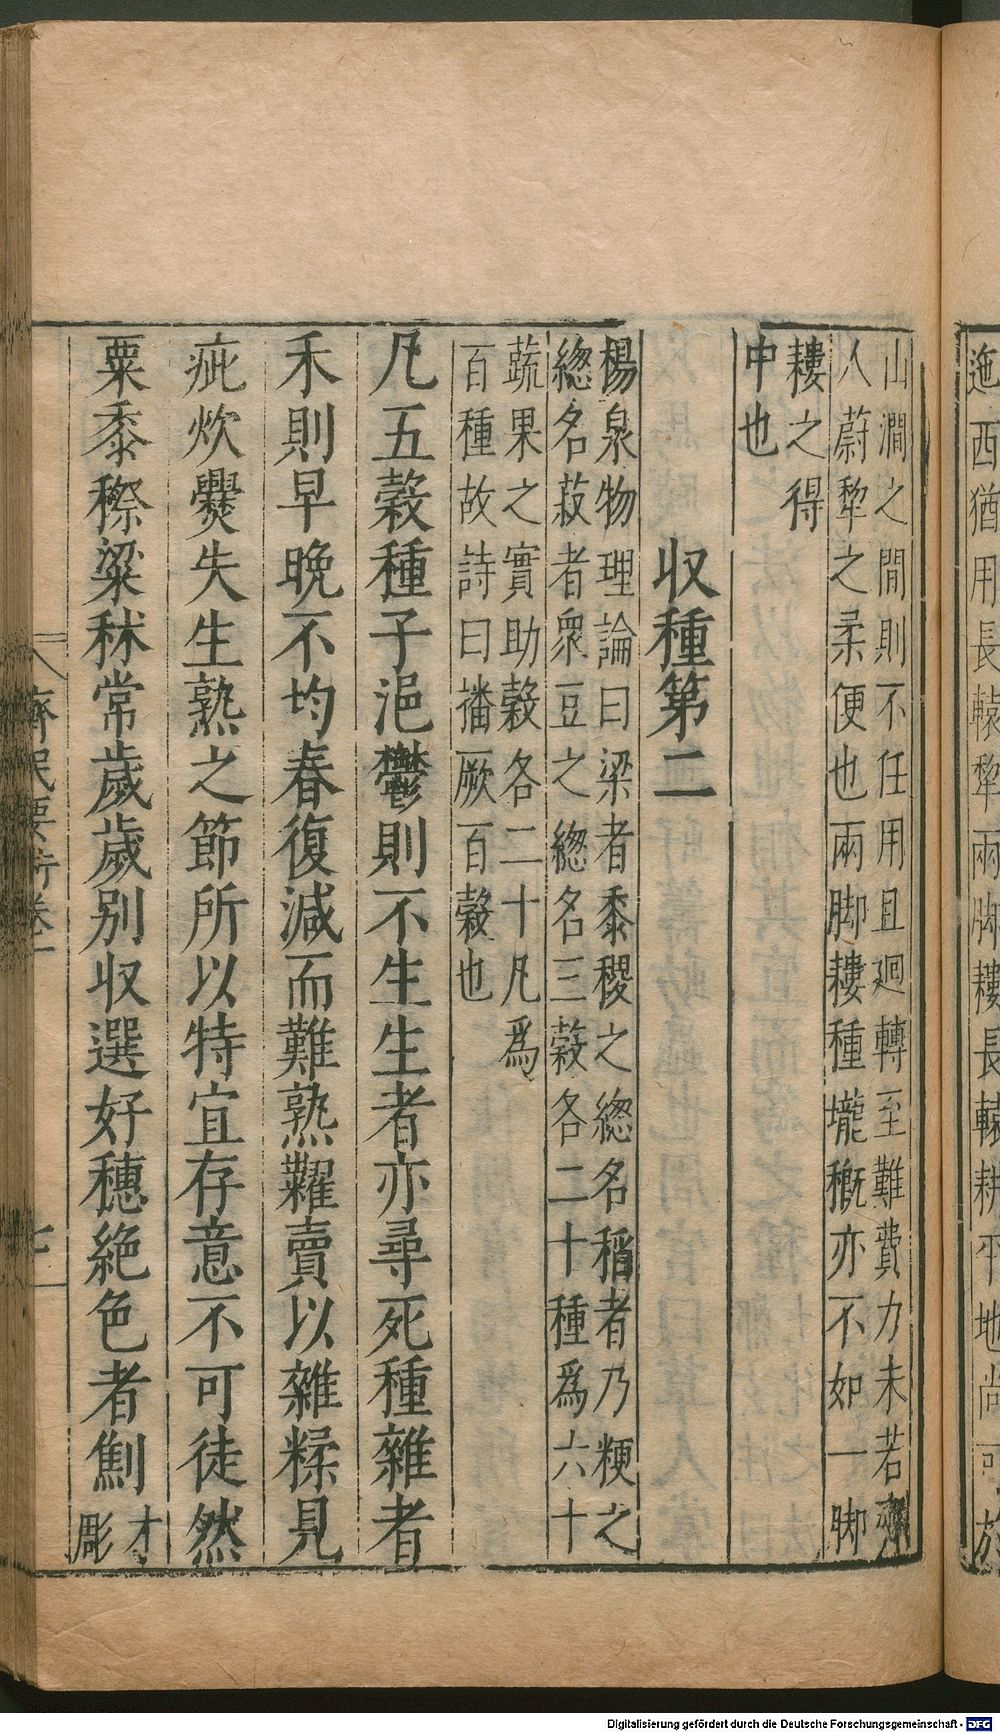 迤西猶用長轅犂兩脚耬長轅耕平地尚可於
山澗之間則不任用且廻轉至難費力未若齊
人蔚犂之柔便也兩脚耬種壠穊亦不如一脚
耬之得
中也
收種第二
楊泉物理論曰梁者黍稷之緫名稻者乃粳之
緫名菽者衆豆之緫名三穀各二十種爲六十
蔬果之實助穀各二十凡爲
百種故詩曰播厥百穀也
凡五穀種子浥鬱則不生生者亦尋死種雜者
禾則早晚不均春復減而難熟糶賣以雜糅見
疵炊爨失生熟之節所以特宜存意不可徒然
粟黍穄粱秫常歲歲別收選好穗絶色者劁
才
彫
齊民要術卷一
七
Digitalisierung gefördert durch die Deutsche Forschungsgemeinschaft - DFG